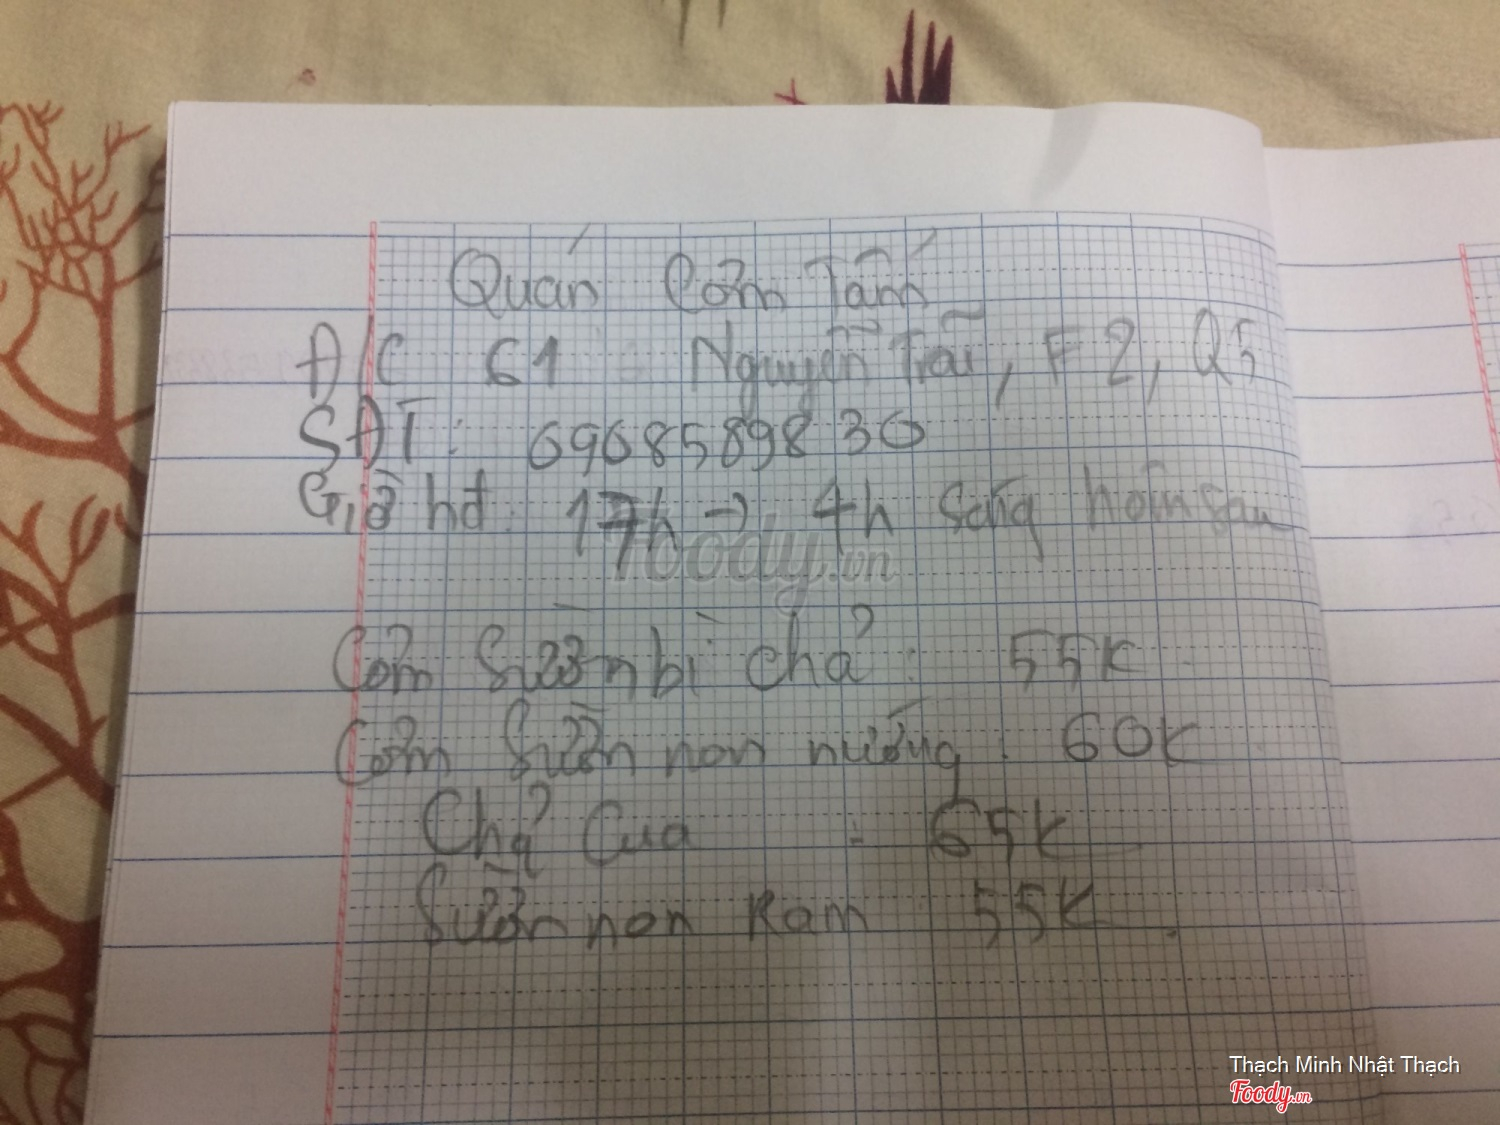 Quán Cơm Tấm
Đ/C 61 Nguyễn Trãi, F2, Q5
SĐT: 0968589830
Giờ hđ: 17h → 4h sáng hôm sau
foody.vn
Cơm Sườn bì chả : 55K
Cơm Sườn non nướng : 60K
Chả Cua - 65K
Sườn non Ram 55K.
Thạch Minh Nhật Thạch
Foody.vn